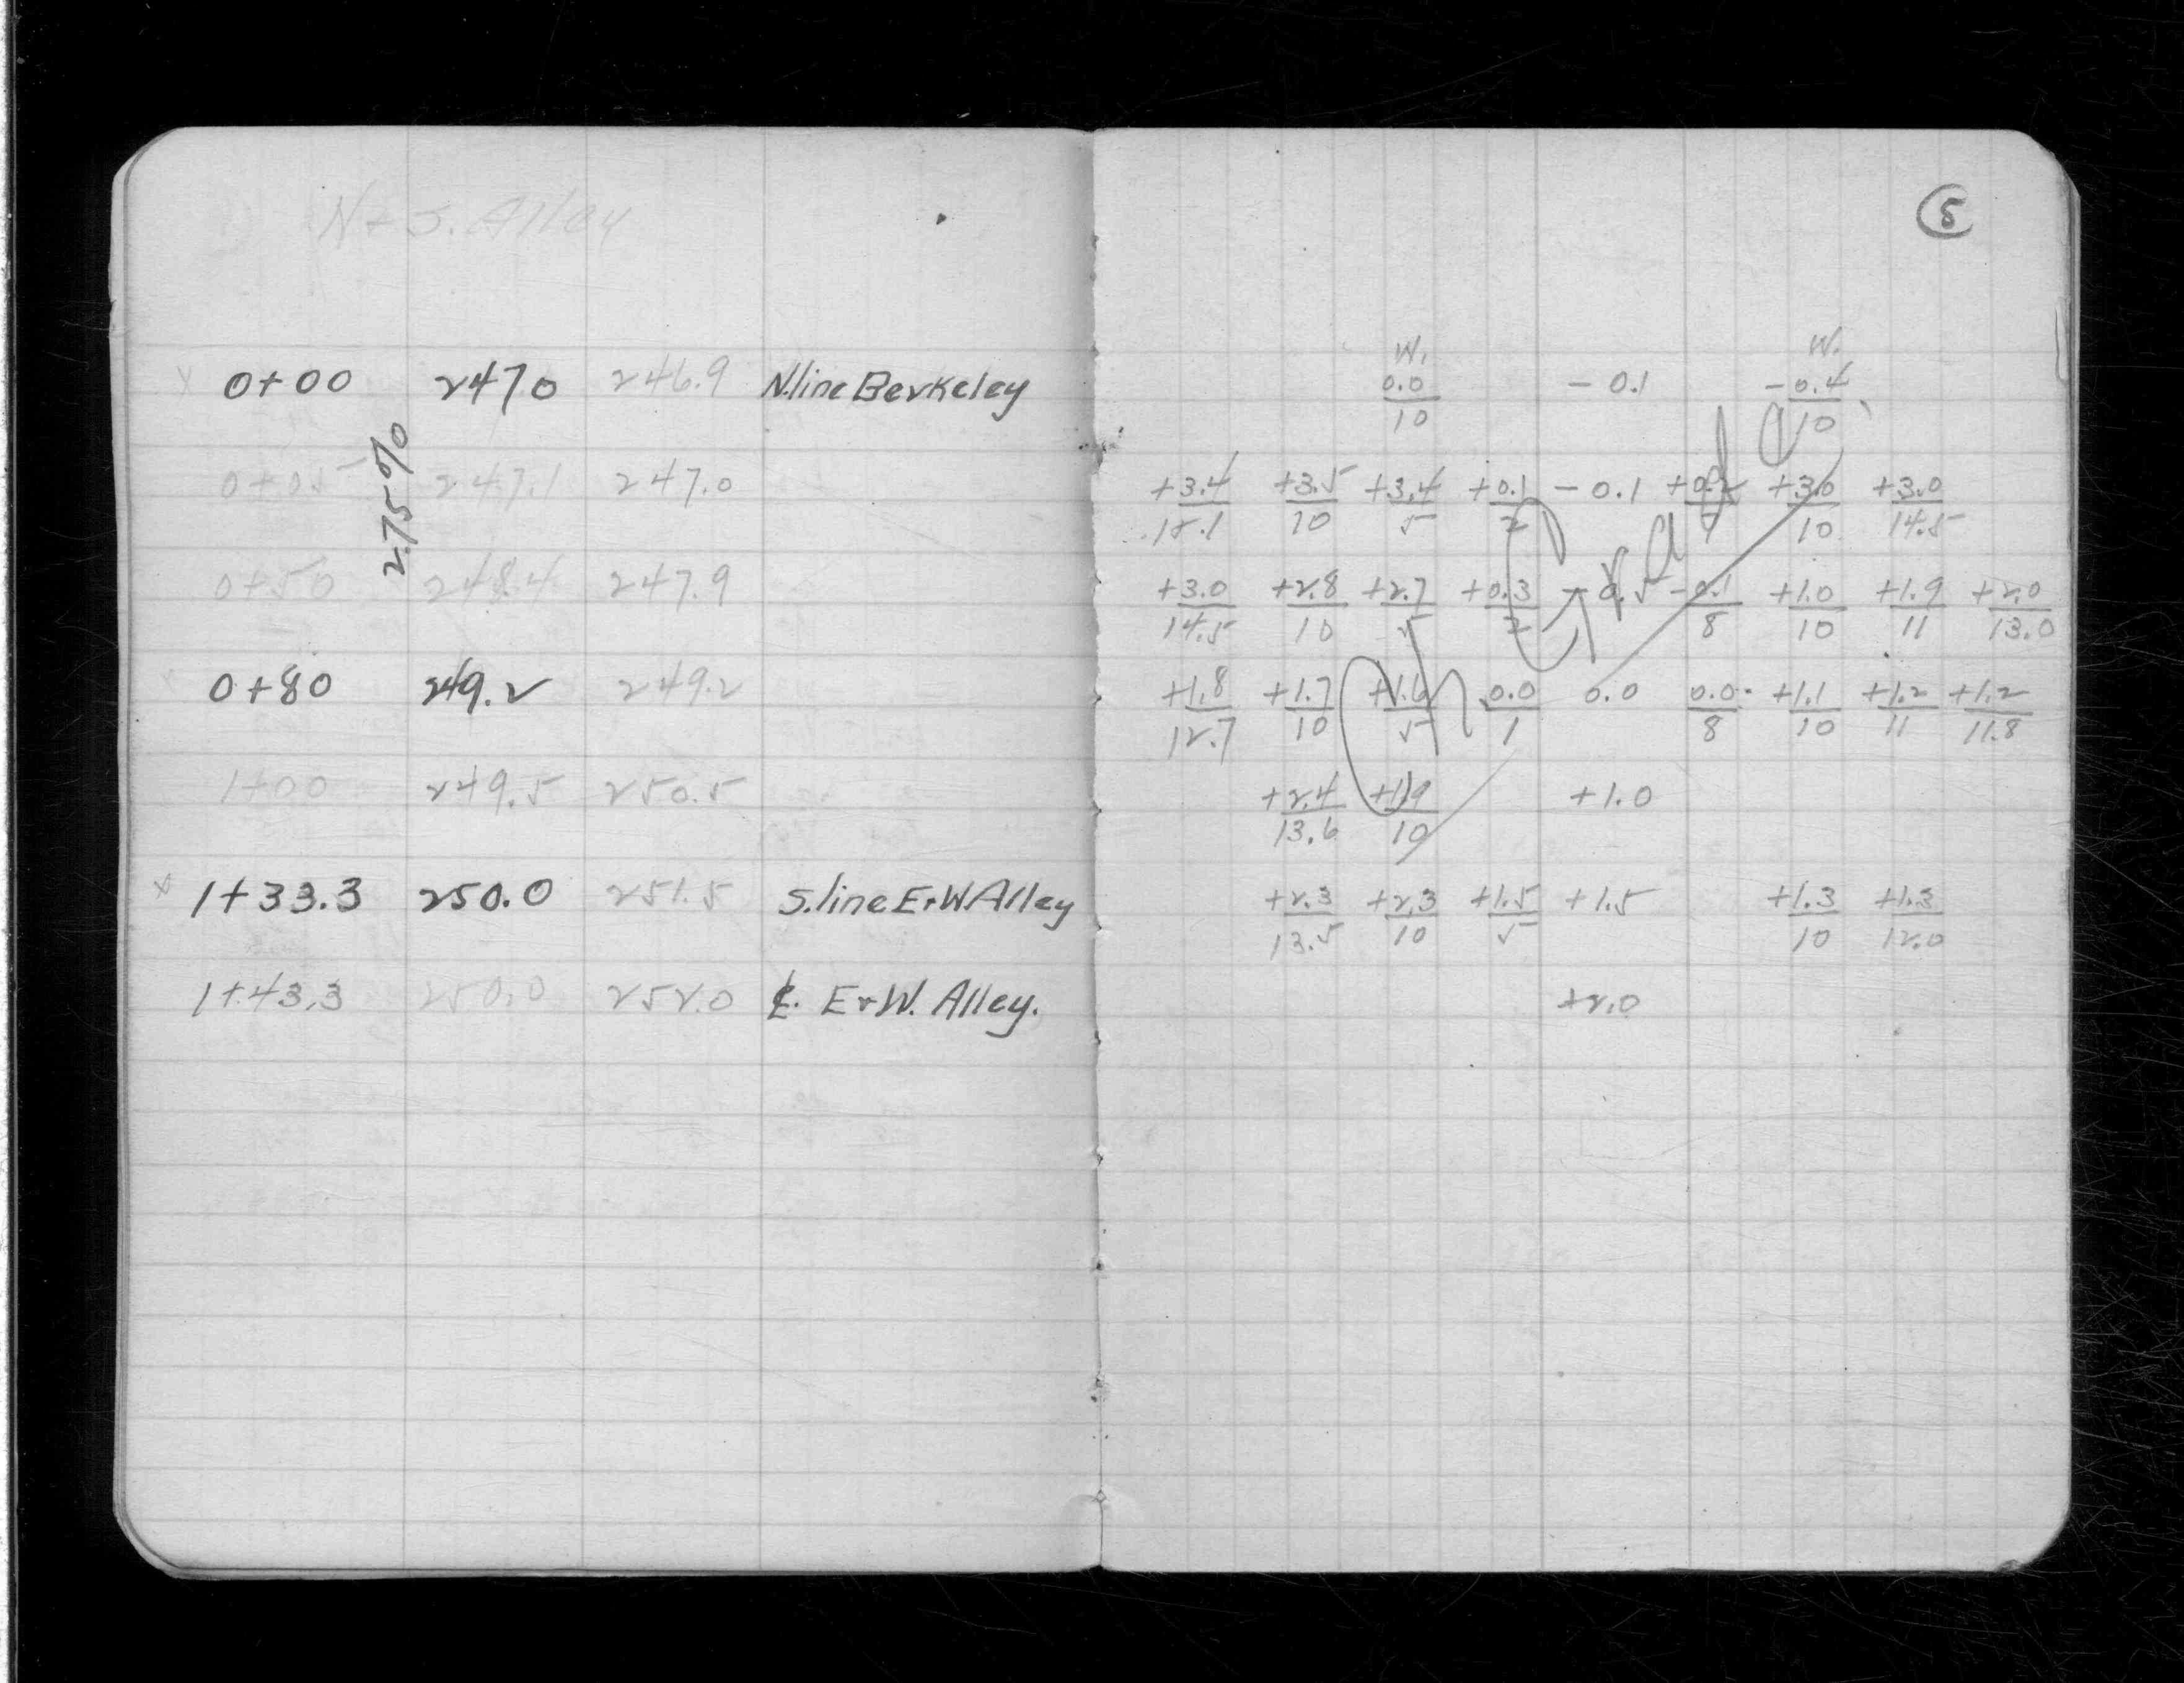 N+S. Alley
5
W. W.
x 0+00 247.0 246.9 N.line Berkeley 0.0/10 -0.1 -0.4/10
2.75%
0+05 247.1 247.0 +3.4/15.1 +3.5/10 +3.4/5 +0.1/2 -0.1 +3.0/10 +3.0/14.5
0+50 248.4 247.9 +3.0/14.5 +2.8/10 +2.7/5 +0.3/2 -0.5 -0.1/8 +1.0/10 +1.9/11 +2.0/13.0
0+80 249.2 249.2 +1.8/12.7 +1.7/10 +1.6/5 0.0/1 0.0 0.0/8 +1.1/10 +1.2/11 +1.2/11.8
1+00 249.5 250.5 +2.4/13.6 +1.9/10 +1.0
x 1+33.3 250.0 251.5 S.line E+W Alley +2.3/13.5 +2.3/10 +1.5/5 +1.5 +1.3/10 +1.3/12.0
1+43.3 250.0 252.0 ℄. E+W. Alley. +2.0